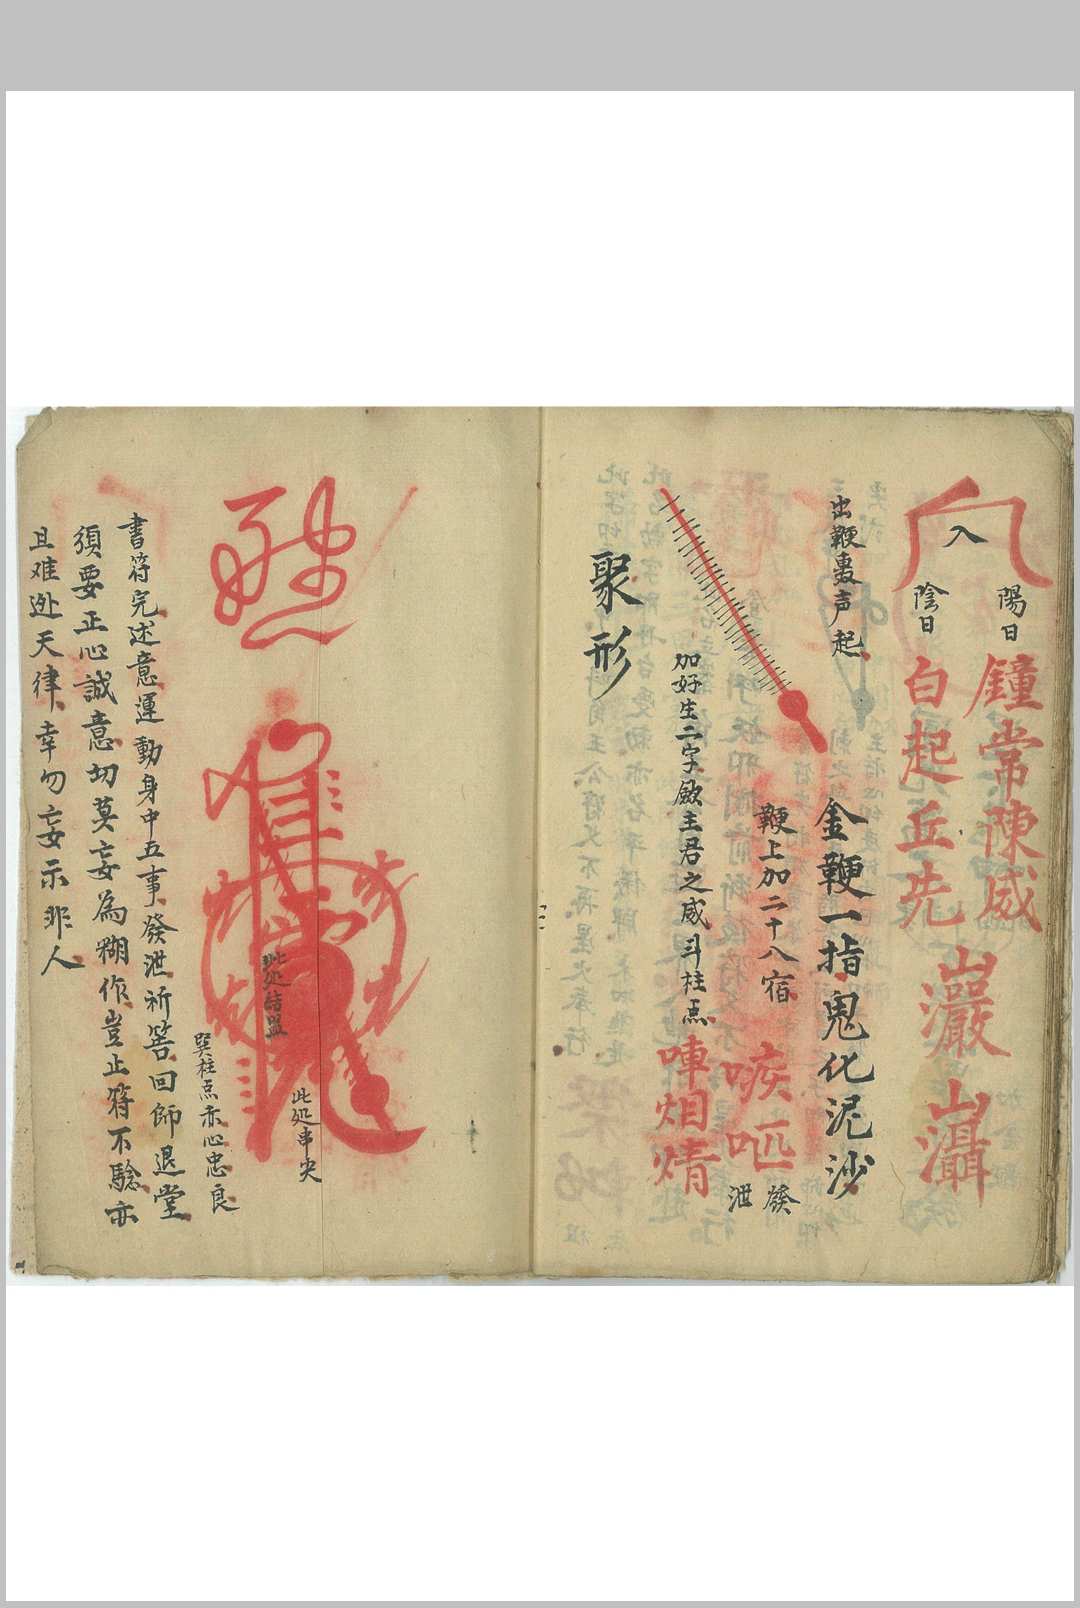 入
陽日
鐘常陳威
陰日
白起丘先
巗
灄
出鞭轰声起
金鞭一指鬼化泥沙
鞭上加二十八宿
嗾
咂
發泄
加好生二字斂主君之威斗柱点
啴烟焇
聚形
此処結罡
此処串尖
巽柱点赤心忠良
書符完述意運動身中五事發泄祈筶回師退堂
須要正心誠意切莫妄為糊作豈止符不騐亦
且难逊天律幸勿妄示非人